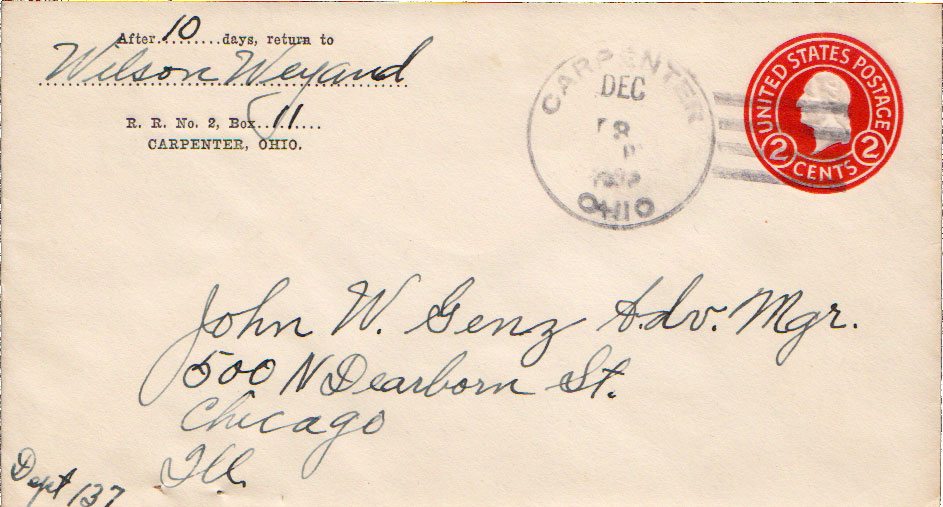 After 10 days, return to
Wilson Weyand
R. R. No. 2, Box 11
CARPENTER, OHIO.
CARPENTER
DEC
8
P
OHIO
UNITED STATES POSTAGE
2 CENTS 2
John W. Genz Adv. Mgr.
500 N Dearborn St.
Chicago
Ill.
Dept 137